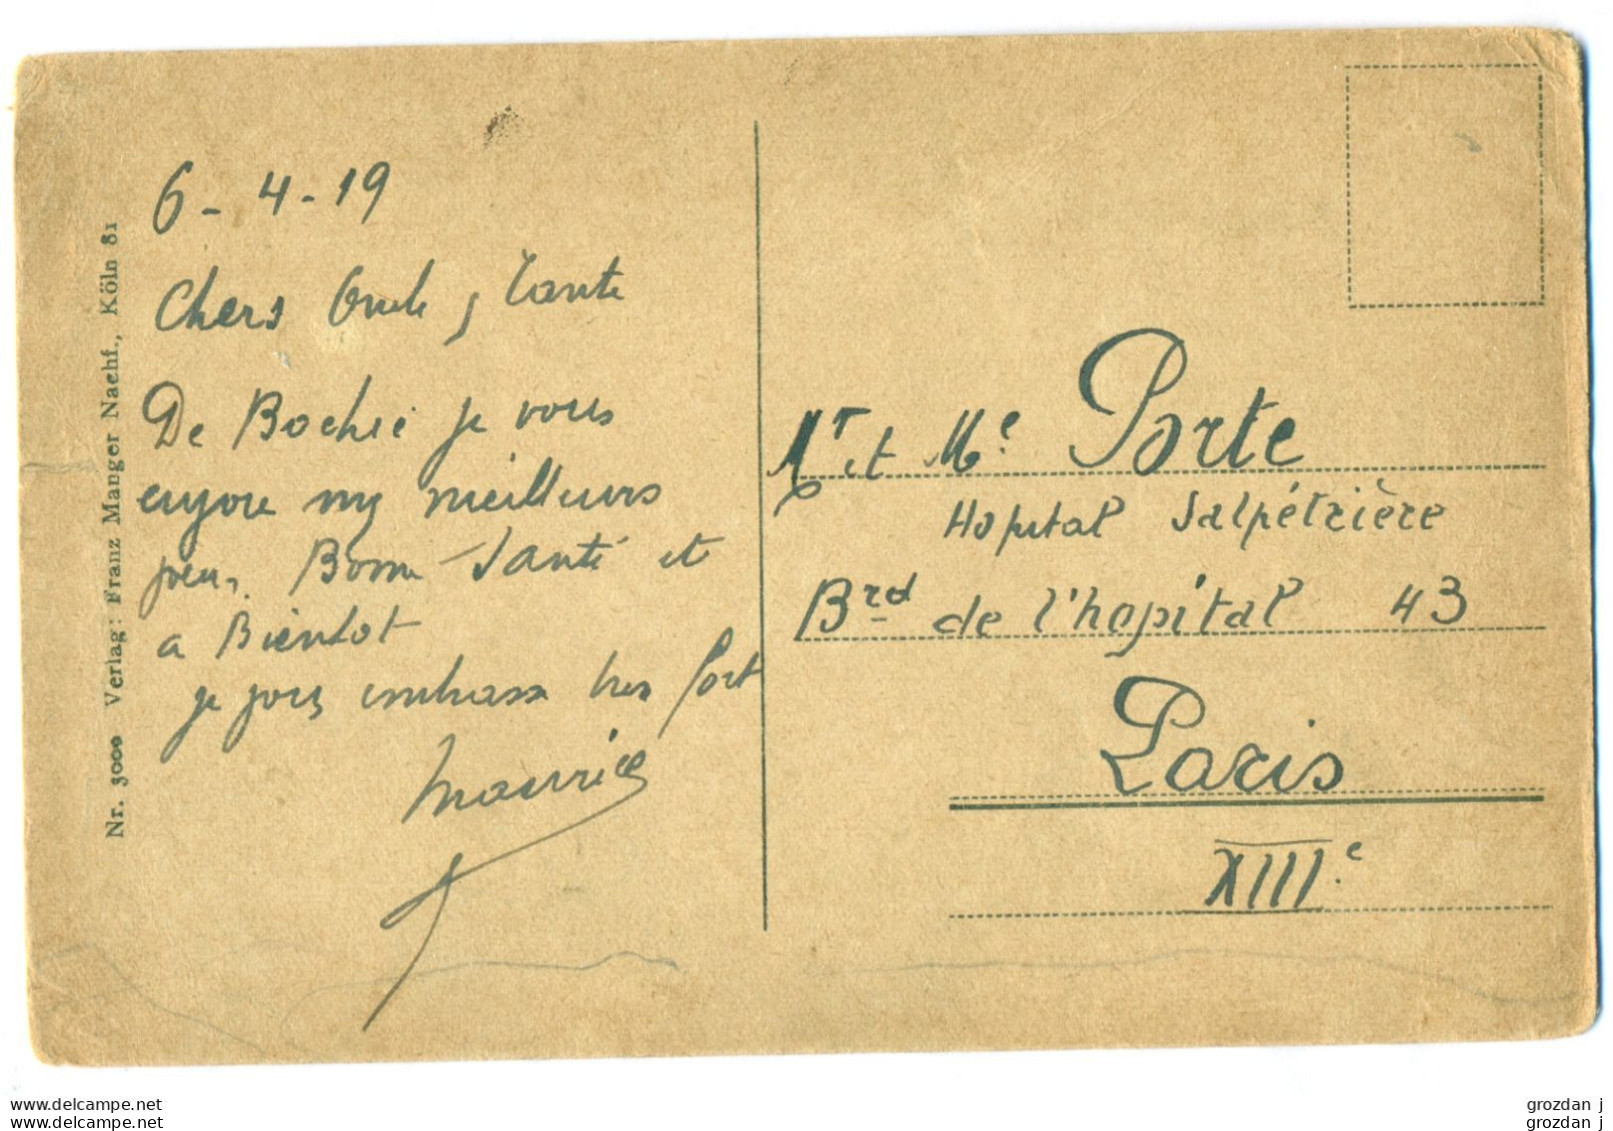 6-4-19
Chers Oncle, Tante
De Bochie je vous
envoie mes meilleurs
Bonne Santé et
a Bientot
je vous embrasse tres fort
Maurice
Nr. 3000 Verlag: Franz Manger Nachf., Köln 81
Mr et Me Porte
Hopital Salpétrière
Brd de l'hopital 43
Paris
XIIIe
www.delcampe.net
www.delcampe.net
grozdan j
grozdan j